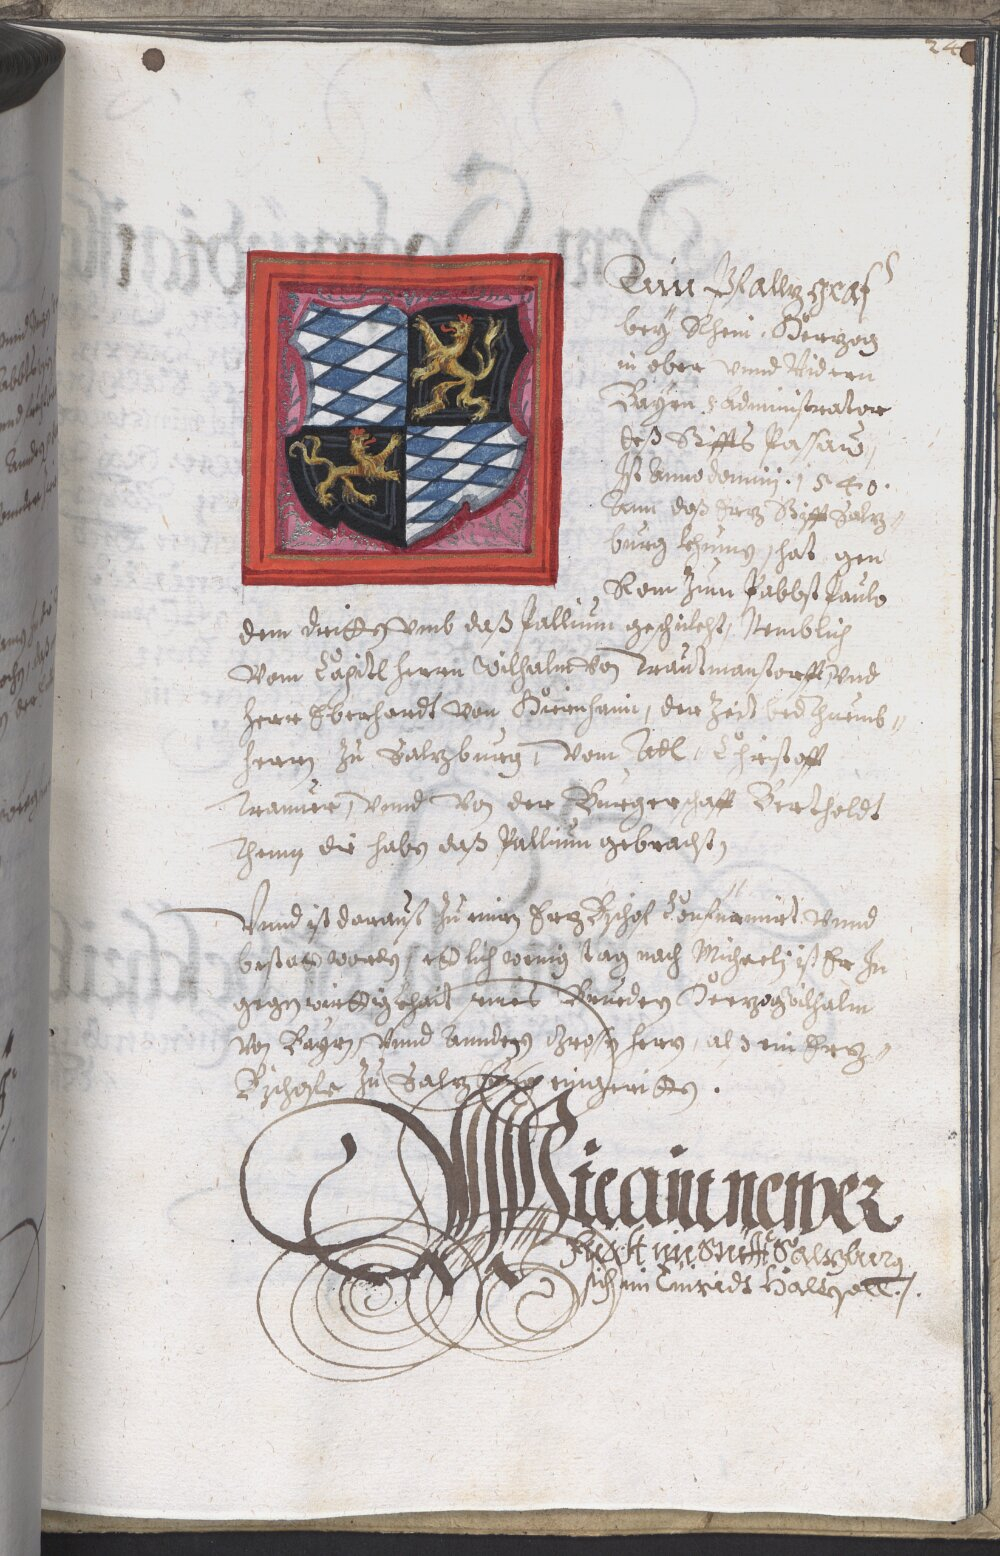 24
Ain Pfallzgraf
bey Rhein, Hertzog
in ober vnnd Nidern
Bayrn, administrator
deß Stiffts Passaw,
Ist Anno domini. 1540.
Ann daß Ertz Stifft Saltz-
burg khumen, hat gen
Rom Zum Pabbst Paulo
dem dritten vmb daß Pallium geschickht, Nemblich
Vom Capitl herrn Wilhalm von Trautmanstorff, vnd
herr Eberhardt von Hirnhaim, der Zeit bed Thumb-
herrn Zu Saltzburg, Vom Adl, Christoff
Trauner, vnnd von der Burgerschafft Bertholdt
Thenn die haben daß Pallium gebracht,
Vnnd ist darauf Zu einem Ertz Bischof Confirmiert vnnd
bestat worden, Etlich wenig tag nach Michaeli ist Er In
gegenwürttigkhait seines Brueders Hertzog Wilhalm
von Bayrn, vnnd Anndern grossen herrn, als ein Ertz-
Bischofe Zu Saltzburg eingeritten.
Wie ain newer
Fürst im Stifft Saltzburg
sich im Einridt Halten soll.